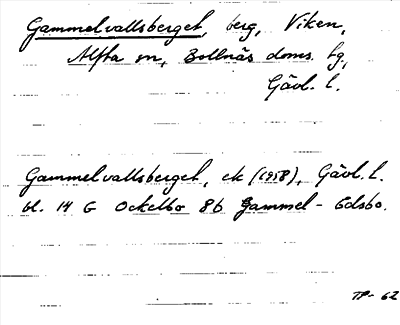 Gammelvallsberget, berg, Viken,
Alfta sn, Bollnäs doms. hg,
Gävl. l.
Gammelvallsberget, ek (1958), Gävl. l.
bl. 14 G Ockelbo 8b Gammel-Edsbo.
TP-62